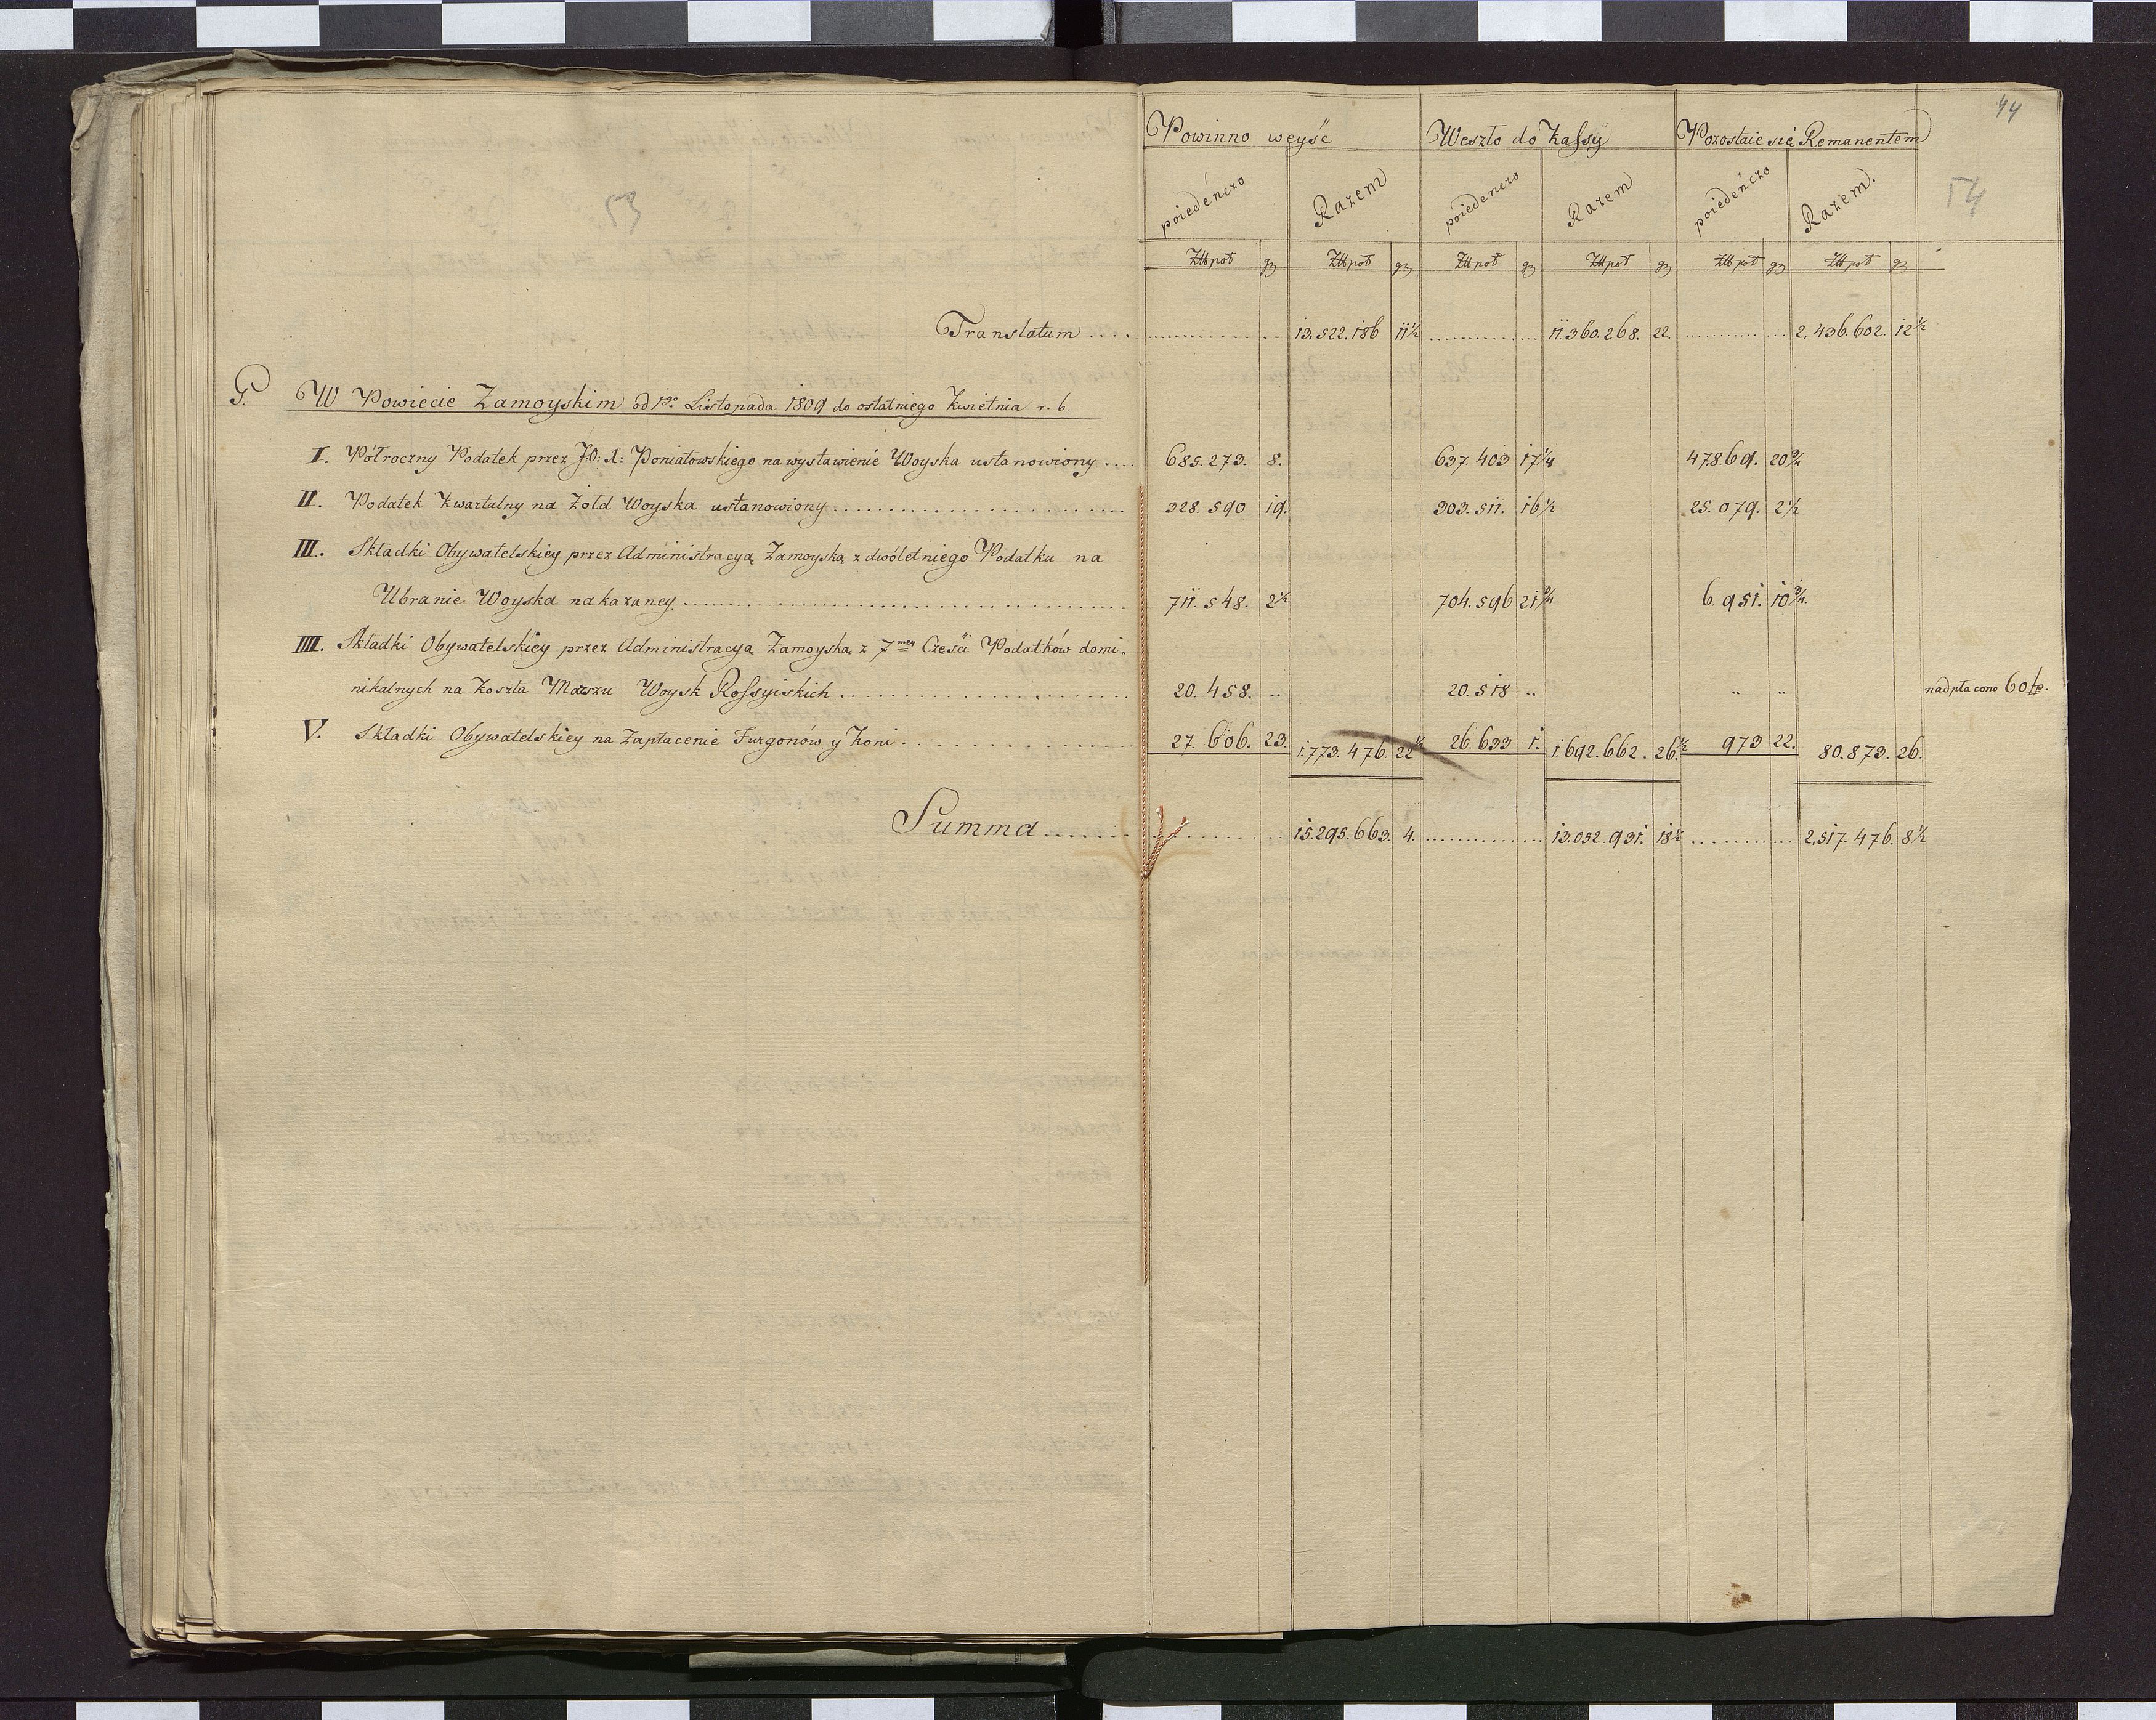 44
53
54
Powinno weyść Weszło do Kassy Pozostaie się Remanentem
poiedeńczo Razem poiedenczo Razem poiedeńczo Razem.
Złł pol gr Złł pol gr Złł pol gr Złł pol gr Złł pol gr Złł pol gr
Translatum .... 13.522.186 11½ 11.360.268. 22. 2.436.602. 12½
G. W Powiecie Zamoyskim od 1go Listopada 1809 do ostatniego Kwietnia r. b.
I. Półroczny Podatek przez J.O: X: Poniatowskiego na wystawienie Woyska ustanowiony .... 685.273. 8. 637.403 17¼ 478.69. 20¾
II. Podatek Kwartalny na Żołd Woyska ustanowiony .... 328.590 19. 303.511. 16½ 25.079. 2½
III. Składki Obywatelskiey przez Administracyą Zamoyską z dwóletniego Podatku na
Ubranie Woyska nakazaney .... 711.548. 2½ 704.596 21¾ 6.951. 10¾.
IIII. Składki Obywatelskiey przez Administracyą Zamoyską z 7mey Części Podatków domi„
nikalnych na Koszta Marszu Woysk Rossyiskich .... 20.458. .. 20.518 .. „ „ nadpłacono 60 fp.
V. Składki Obywatelskiey na Zapłacenie Furgonów y Koni .... 27.606. 23. 1.773.476. 22½ 26.633 1. 1.692.662. 26½ 973 22. 80.873. 26.
Summa .... 15.295.663. 4. 13.052.931. 18½ 2.517.476. 8½